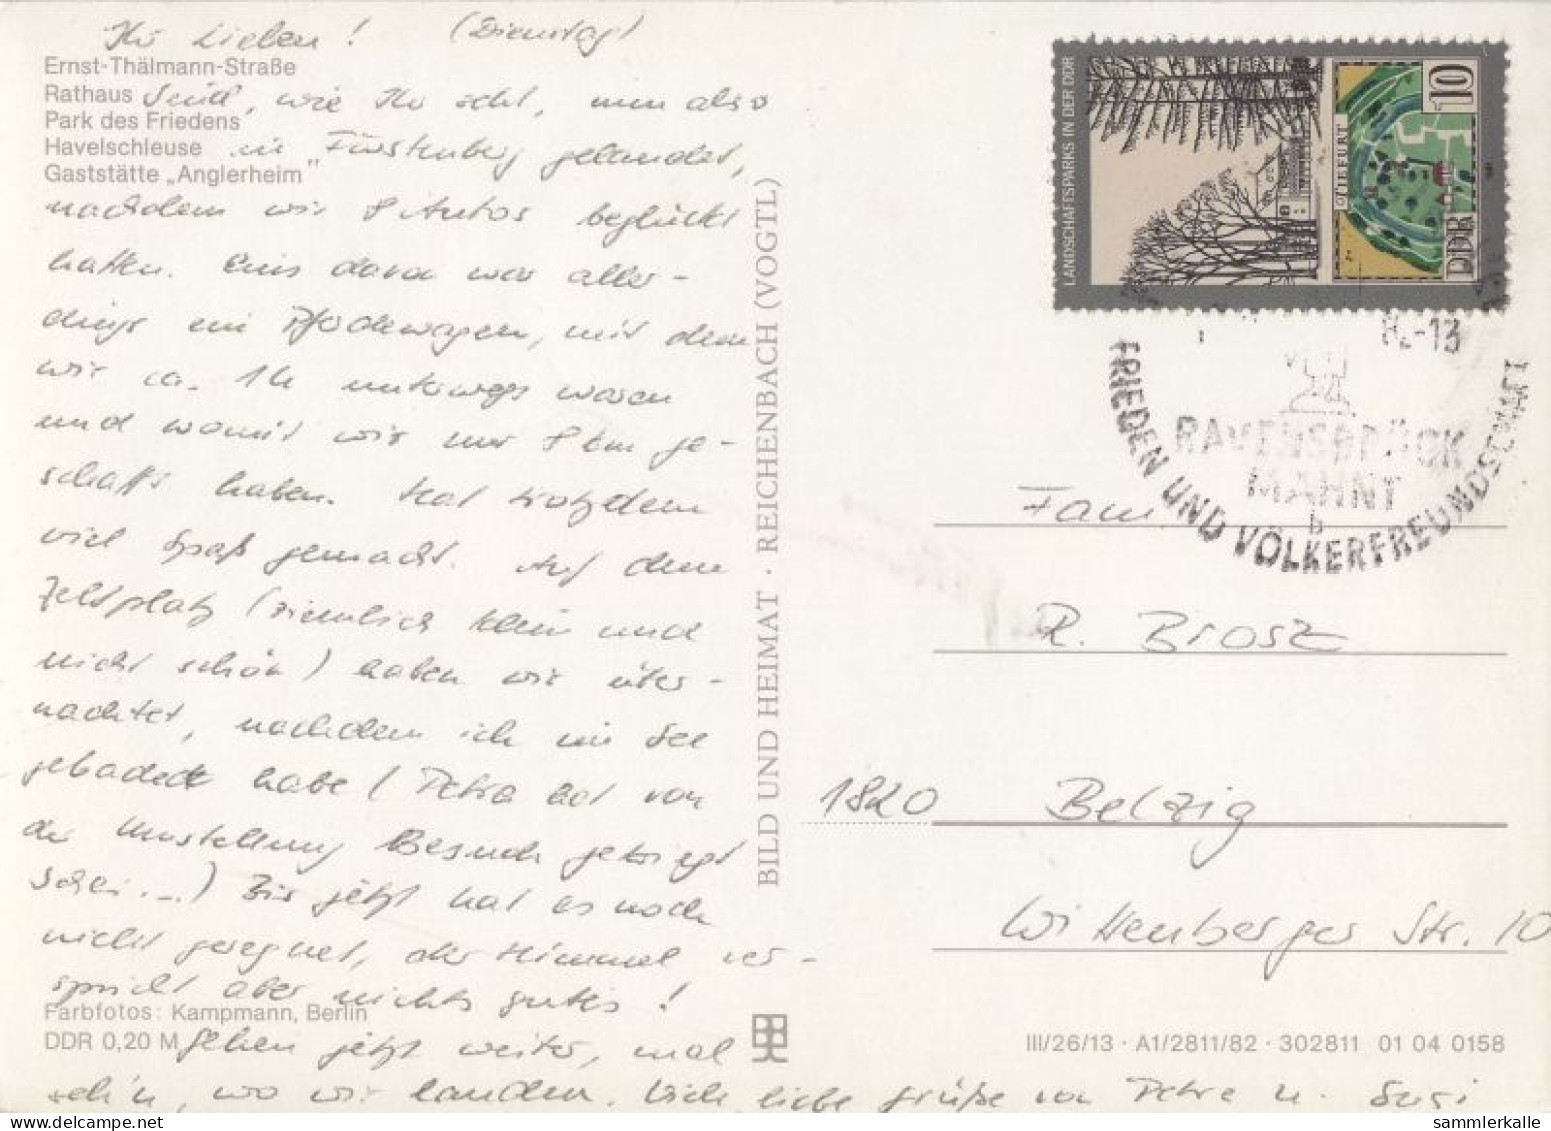 Ihr Lieben! (Dienstag)
Ernst-Thälmann-Straße
Rathaus
Park des Friedens
Havelschleuse
Gaststätte „Anglerheim"
Sind, wie Ihr seht, nun also
in Fürstenberg gelandet,
nachdem wir 8 Autos beglückt
hatten. Eins davon war aller-
dings ein Pferdewagen, mit dem
wir ca. 1h unterwegs waren
und womit wir nur 8 km ge-
schafft haben. Hat trotzdem
viel Spaß gemacht. Auf dem
Zeltplatz (ziemlich klein und
nicht schön) haben wir über-
nachtet, nachdem ich im See
gebadet habe (Petra hat von
der Umstellung Besuch gekriegt
...) Bis jetzt hat es noch
nicht geregnet, der Himmel ver-
spricht aber nichts gutes!
Farbfotos: Kampmann, Berlin
DDR 0,20 M
Gehen jetzt weiter, mal
seh'n, wo wir landen. Viele liebe Grüße von Petra u. Susi
BILD UND HEIMAT · REICHENBACH (VOGTL)
LANDSCHAFTSPARKS IN DER DDR
TIEFURT
10
DDR
82-13
RAVENSBRÜCK
MAHNT
b
FRIEDEN UND VÖLKERFREUNDSCHAFT
Fam.
R. Brosz
1820 Belzig
Wittenberger Str. 10
III/26/13 · A1/2811/82 · 302811 01 04 0158
sammlerkalle